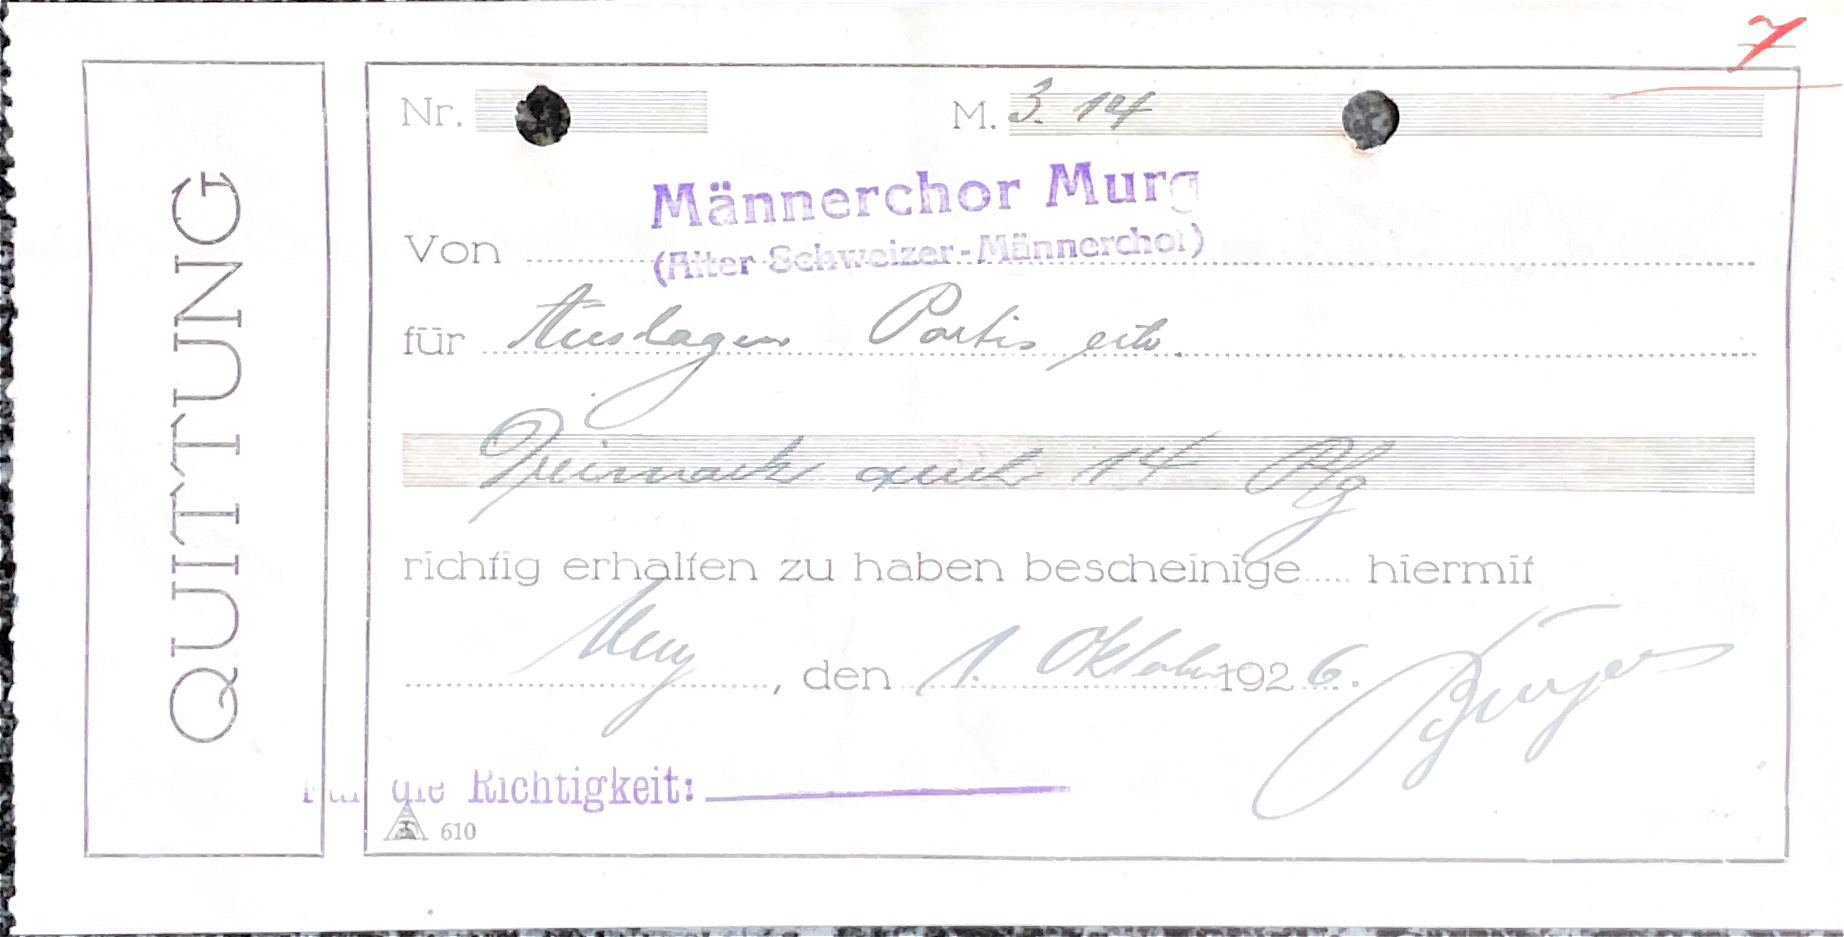 7
QUITTUNG
Nr. M. 3.14
Männerchor Murg
Von (Alter Schweizer-Männerchor)
für Auslagen Portis etc.
Dreimark auch 14 Pfg
richtig erhalten zu haben bescheinige hiermit
Murg, den 1. Oktober 1926.
Für die Richtigkeit:
610